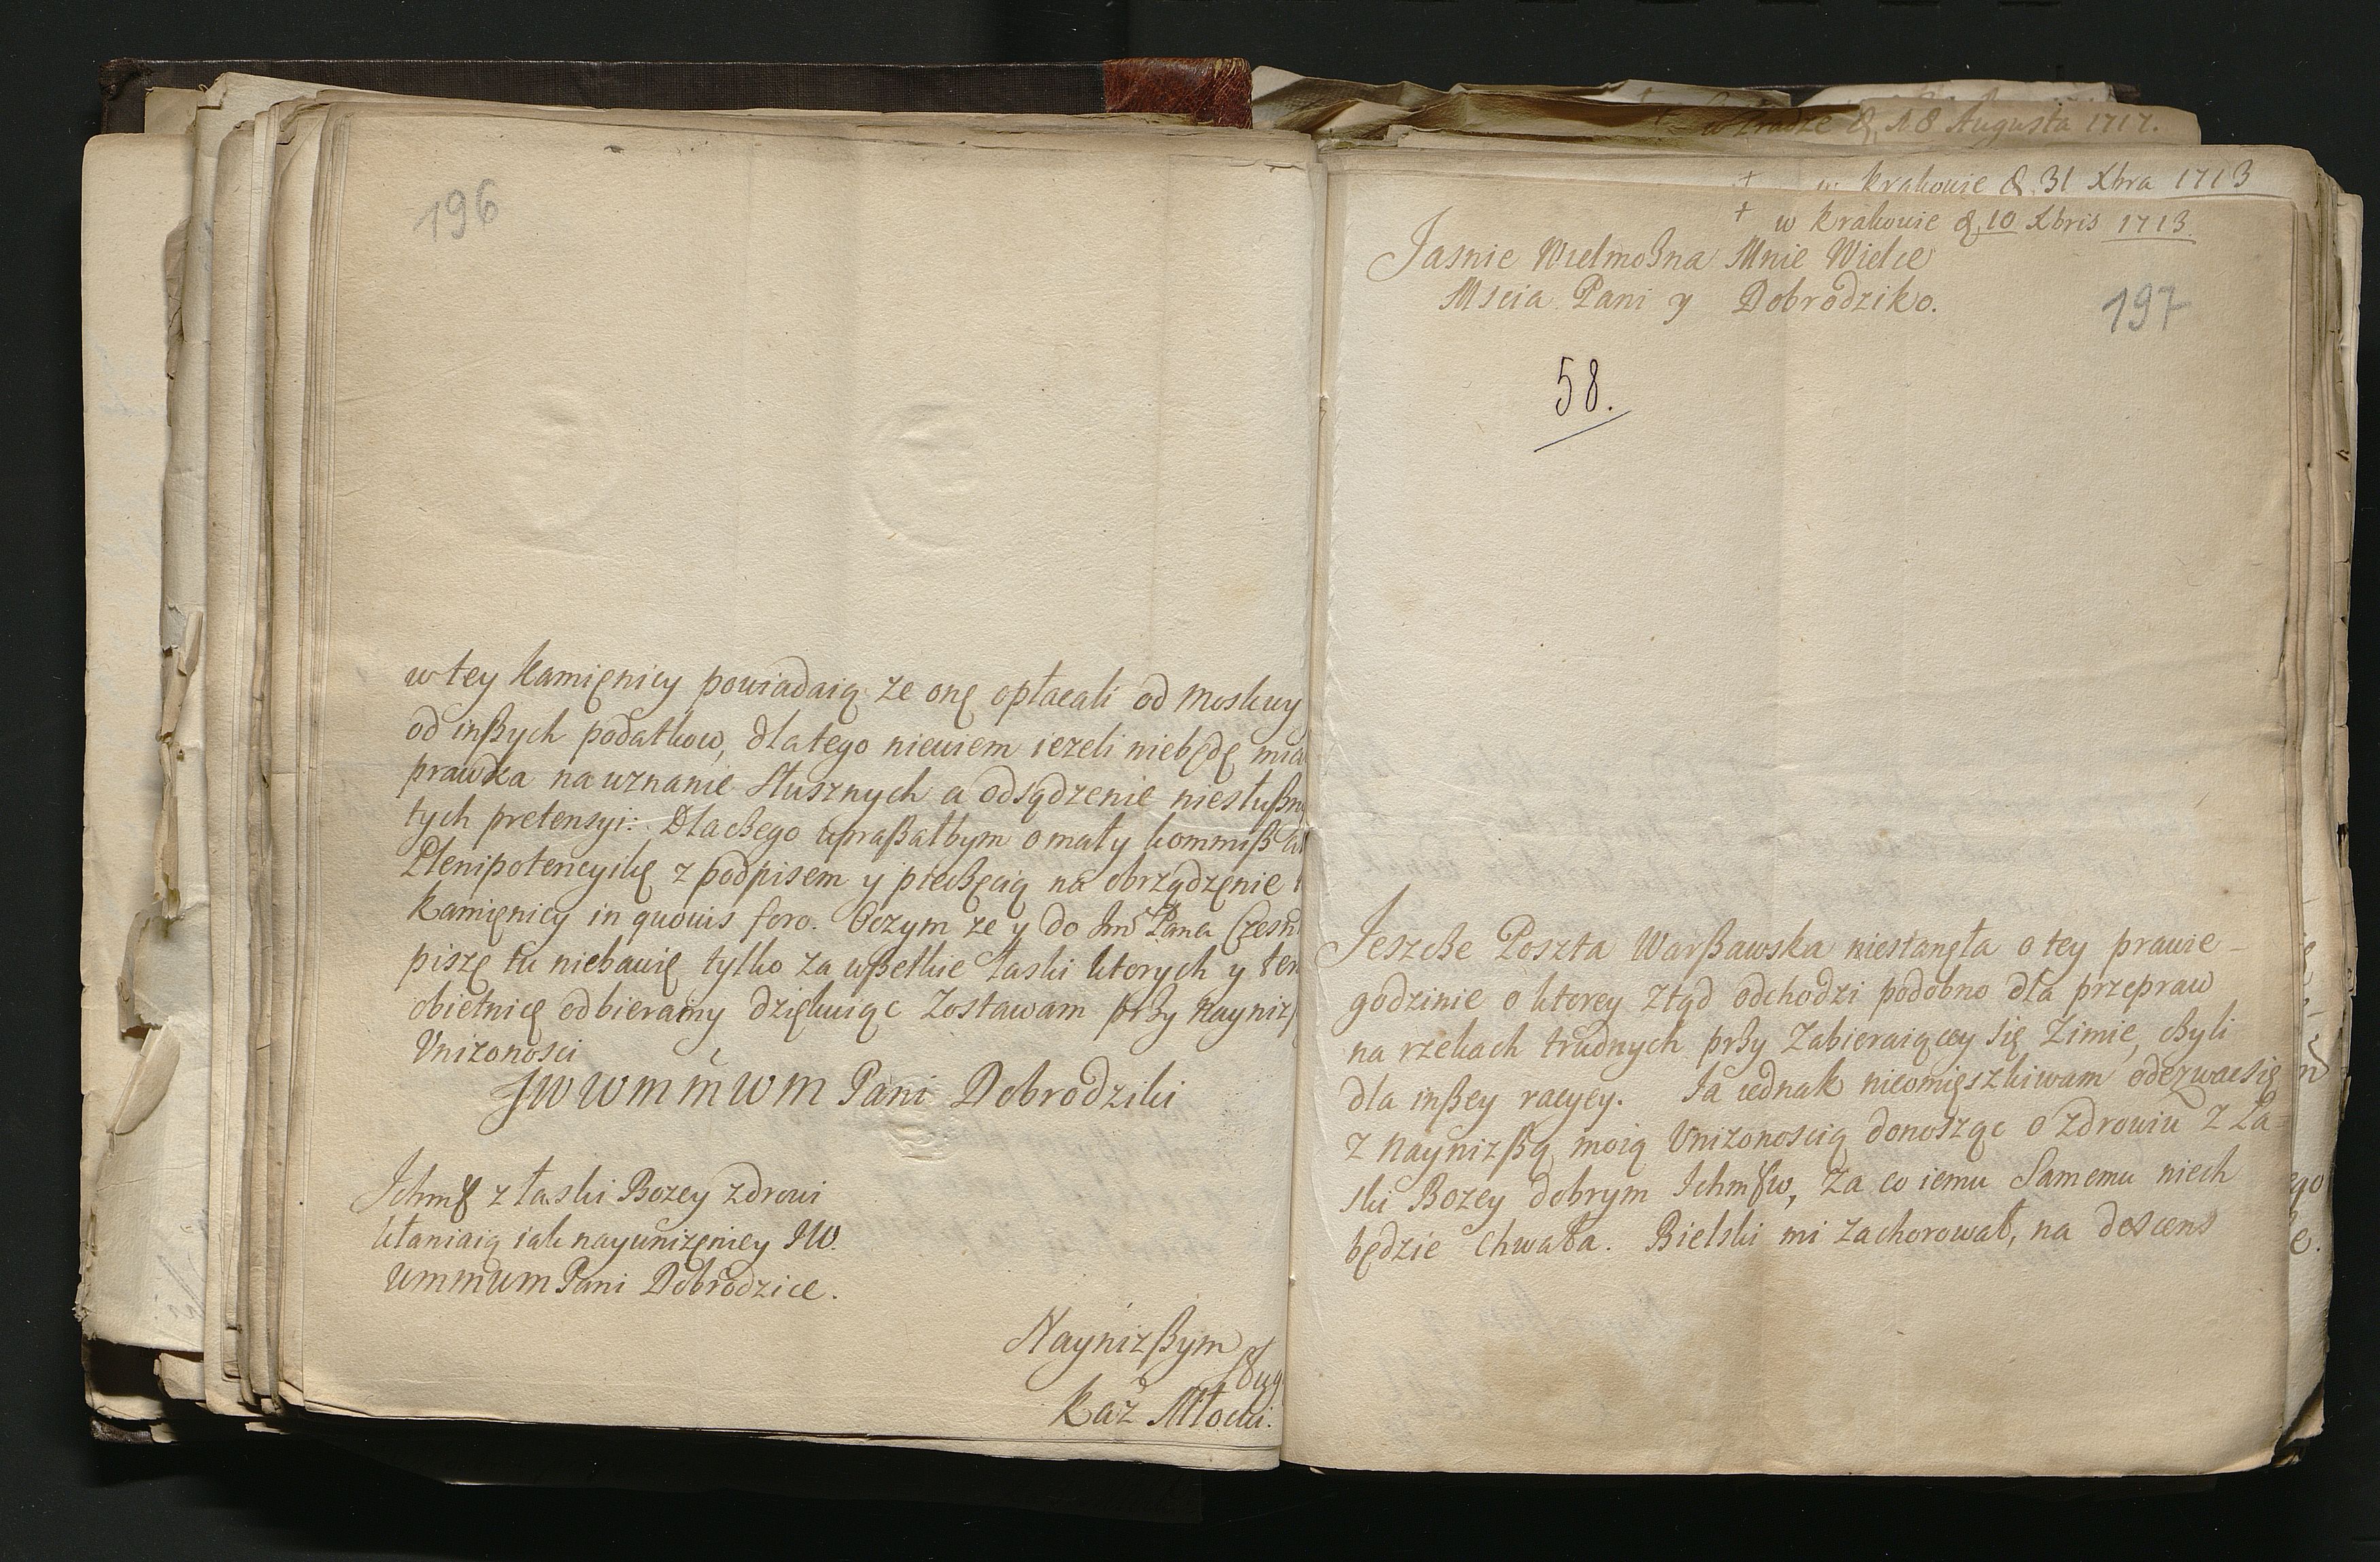 196
w tey kamięnicy powiadaią ze onę opłacali od Moskwy
od inßych podatkow, dla tego niewiem iezeli niebędę mia
prawdza na uznanie słusznych a odsądzenie niesłußn
tych pretensyi: Dlaczego upraßałbym o mały kommiß
Plenipotencyikę z podpisem y pieczęcią na obrządzęnie
kamięnicy in quouis foro. Oczym ze y do Jm Pana Czesn
piszę tu niebawię tylko za wßetkie łaski ktorych y ter
obietnicę odbieramy dziękuiąc zostawam przy Nayniz
Vnizonosci
JWWMMWM Pani Dobrodziki
Ichmę z łaski Bozey zdrowi
kłaniaią iak nayunizęniey JW.
WMMWM Pani Dobrodzice.
Naynizßym
sług
Kaz Młocki.
w Kradze d. 18 Augusta 1717.
+ w Krakowie d. 31 Xbra 1713
+ w Krakowie d. 10 Xbris 1713.
Jasnie Wielmożna Mnie Wielce
Mscia Pani y Dobrodziko.
197
58.
Jeszcze Poszta Warßawska niestanęła o tey prawie
godzinie o ktorey ztąd odchodzi podobno dla przepraw
na rzekach trudnych przy zabieraiącey się zimie, czyli
dla inßey racyey. Ja iednak nieomięszkiwam odezwac się
z Naynizßą moią Vnizonoscią donosząc o zdrowiu z Ła-
ski Bozey dobrym Ichmęw, za co iemu Samemu niech
będzie chwała. Bielski mi zachorował, na descens